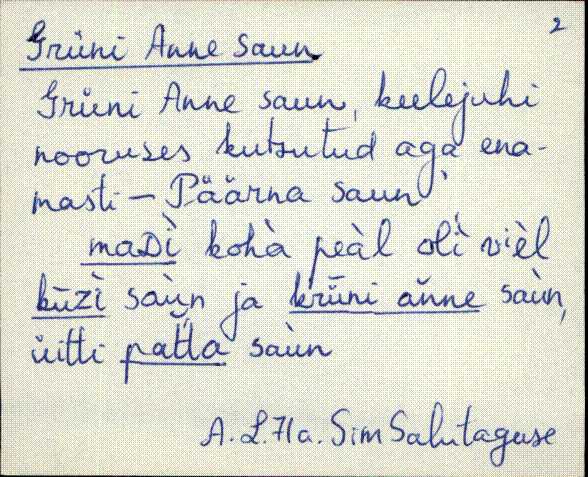 2
Grüni Anne saun
Grüni Anne saun, keelejuhi
nooruses kutsutud aga ena-
masti – Päärna saun
maDì kohà peàl olì vièl
kūzì saùn ja krǖni ǎnne saùn,
üitti patla saùn
A. L. 71a. Sim Salutaguse